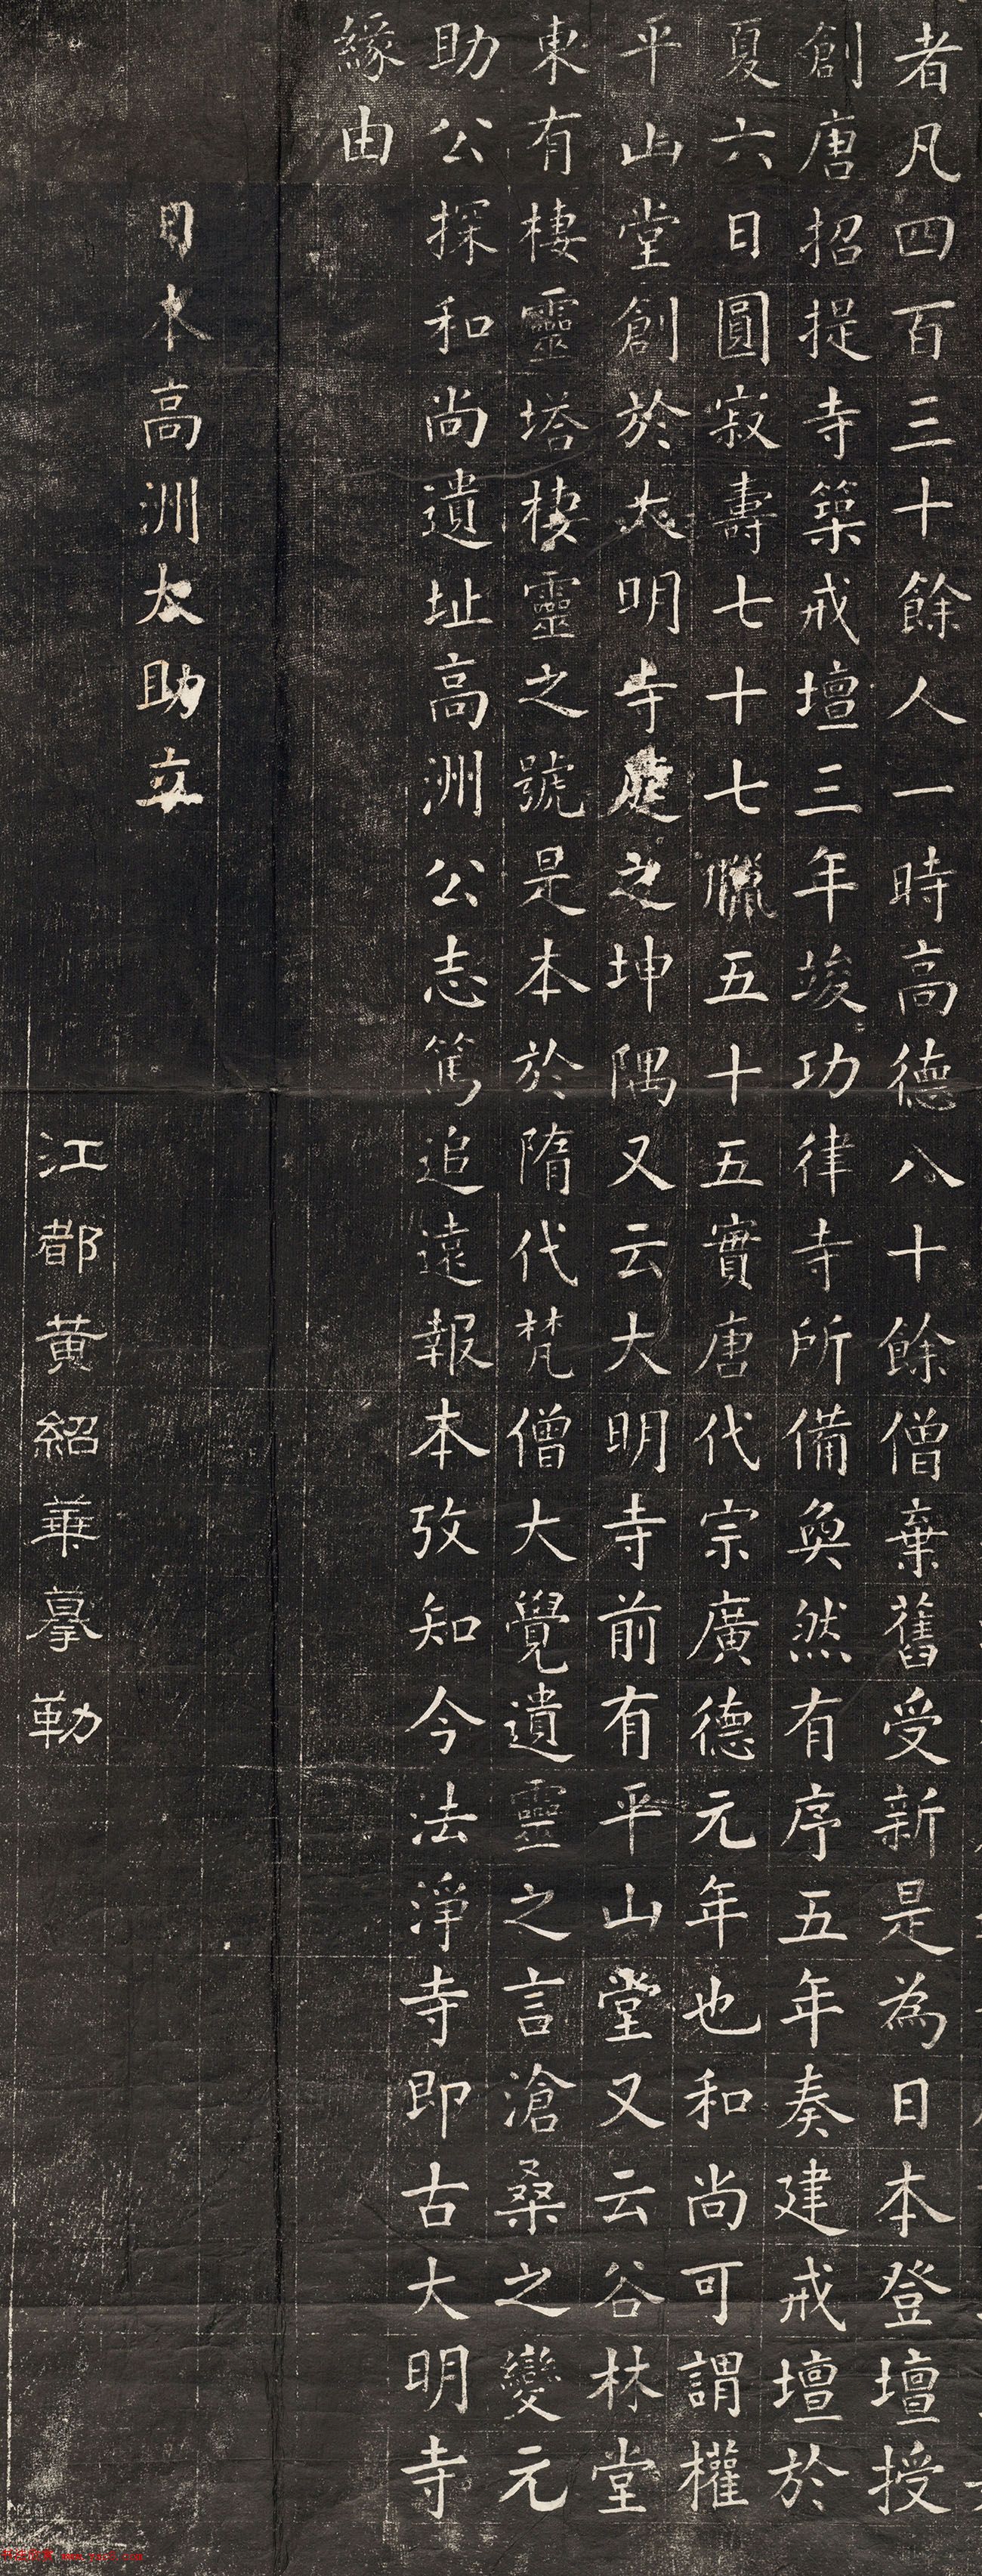 者凡四百三十餘人一時高德八十餘僧棄舊受新是為日本登壇授
創唐招提寺築戒壇三年竣功律寺所備奐然有序五年奏建戒壇於
夏六日圓寂壽七十七臘五十五實唐代宗廣德元年也和尚可謂權
平山堂創於大明寺處之坤隅又云大明寺前有平山堂又云谷林堂
東有棲靈塔棲靈之號是本於隋代梵僧大覺遺靈之言滄桑之變元
助公探和尚遺址高洲公志篤追遠報本攷知今法淨寺即古大明寺
緣由
日本高洲太助立
江都黃紹華摹勒